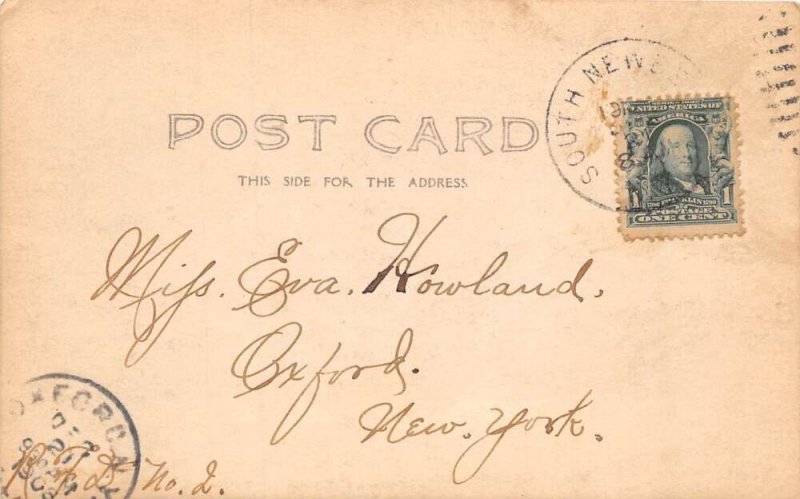 SOUTH NEW
SERIES 1902
UNITED STATES OF
AMERICA
1 1
1706 FRANKLIN 1790
POSTAGE
ONE CENT
POST CARD
THIS SIDE FOR THE ADDRESS
Miss. Eva. Howland.
Oxford.
New. York.
OXFORD N.Y.
R.F.D. No. 2.